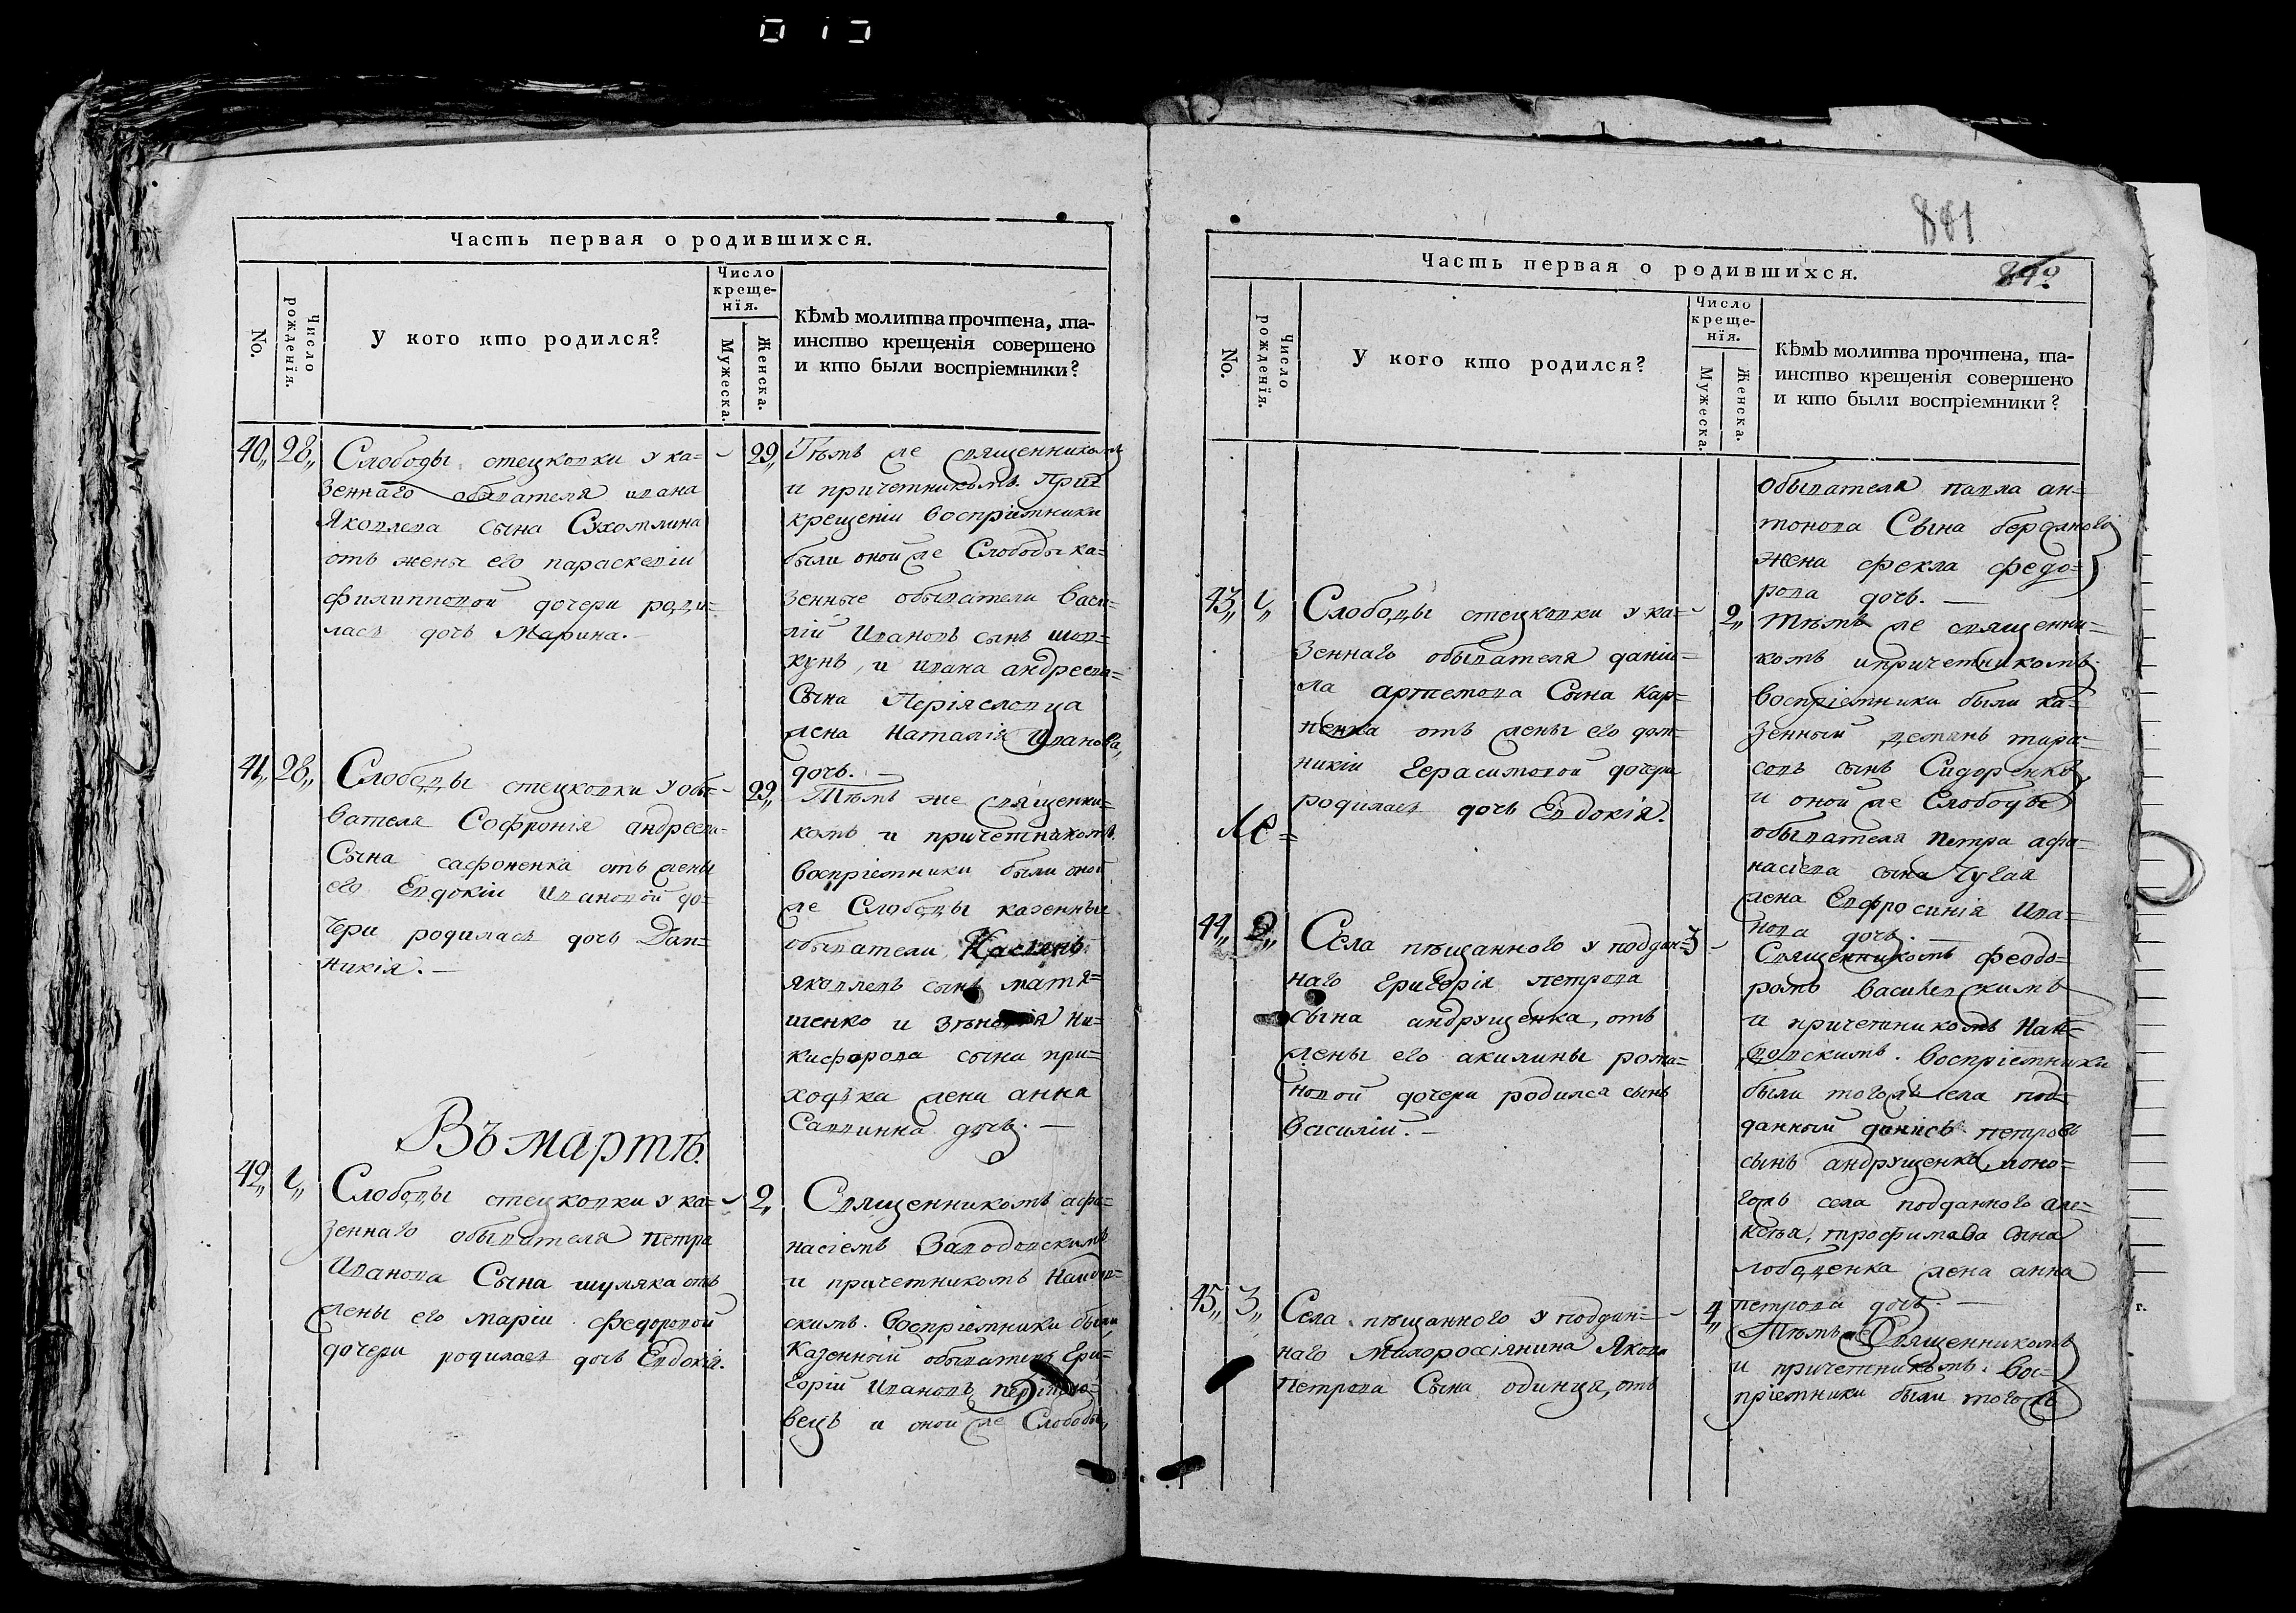 Часть первая о родившихся.
No.
Число рожденія.
У кого кто родился?
Число
креще-
нія.
Мужеска.
Женска.
Кѣмъ молитва прочтена, та-
инство крещенія совершено
и кто были воспріемники?
40,, 28,, Слободы стецковки у ка-
зеннаго обывателя ивана
Яковлева сына Сухомлина
отъ жены его параскевіи
филипповой дочери роди-
лась дочь Марина. —
29,, Тѣмъ же священникомъ
и причетникомъ. При
крещеніи воспріемники
были оной же Слободы ка-
зенные обыватели Васи-
лій Ивановъ сынъ шов-
кунъ, и ивана андреева
Сына Періяславца
жена Наталія Иванова,
дочь. —
41,, 28,, Слободы стецковки у обы-
вателя Софронія андреева
Сына сафоненка отъ жены
его Евдокіи Ивановой до-
чери родилась дочь Дом-
никія. —
29,, Тѣмъ же священни-
комъ и причетникомъ.
воспріемники были оной
же Слободы казенныи
обыватели
яковлевъ сынъ матя-
шенко и Ни-
кифорова сына при-
ходька жена анна
Саввинна дочь. —
Въ мартѣ.
42,, 1,, Слободы стецковки у ка-
зеннаго обывателя петра
Иванова Сына шуляка отъ
жены его маріи федоровой
дочери родилась дочь Евдокія.
2,, Священникомъ афа-
насіемъ Заводовскимъ
и причетникомъ
скимъ. воспріемники были,
Казенный обыватель Гри-
горій Ивановъ
вецъ и оной же Слободы,
801
Часть первая о родившихся.
No.
Число рожденія.
У кого кто родился?
Число
креще-
нія.
Мужеска.
Женска.
Кѣмъ молитва прочтена, та-
инство крещенія совершено
и кто были воспріемники?
обывателя павла ан-
тонова Сына
жена фекла федо-
рова дочь. —
43,, 1,, Слободы стецковки у ка-
зеннаго обывателя даніи-
ла артемова Сына Кар-
пенка отъ жены его дом-
никіи Герасимовой дочери
родилась дочь Евдокія.
2,, Тѣмъ же священни-
комъ и причетникомъ.
воспріемники были ка-
зенный демянъ тара-
совъ сынъ Сидоренко,
и оной же Слободы
обывателя петра афа-
насіева сына Чугая
жена Евфросинія Ива-
нова дочь. —
44,, 2,, Села пѣщанного у поддан-
наго григорія петрова
сына андрущенка, отъ
жены его акилины рома-
новой дочери родился сынъ
Василій. —
3 Священникомъ феодо-
ромъ
и причетникомъ
воспріемники
были тогожъ села под-
данный денисъ петровъ
сынъ андрущенко,
села подданного але-
ксѣя, трофимова сына
лободенка жена анна
петрова дочь. —
45,, 3,, Села пѣщанного у поддан-
наго Малороссіянина Якова
Петрова Сына одинца, отъ
4,, Тѣмъ же Священникомъ
и причетникомъ. Вос-
пріемники были тогожъ